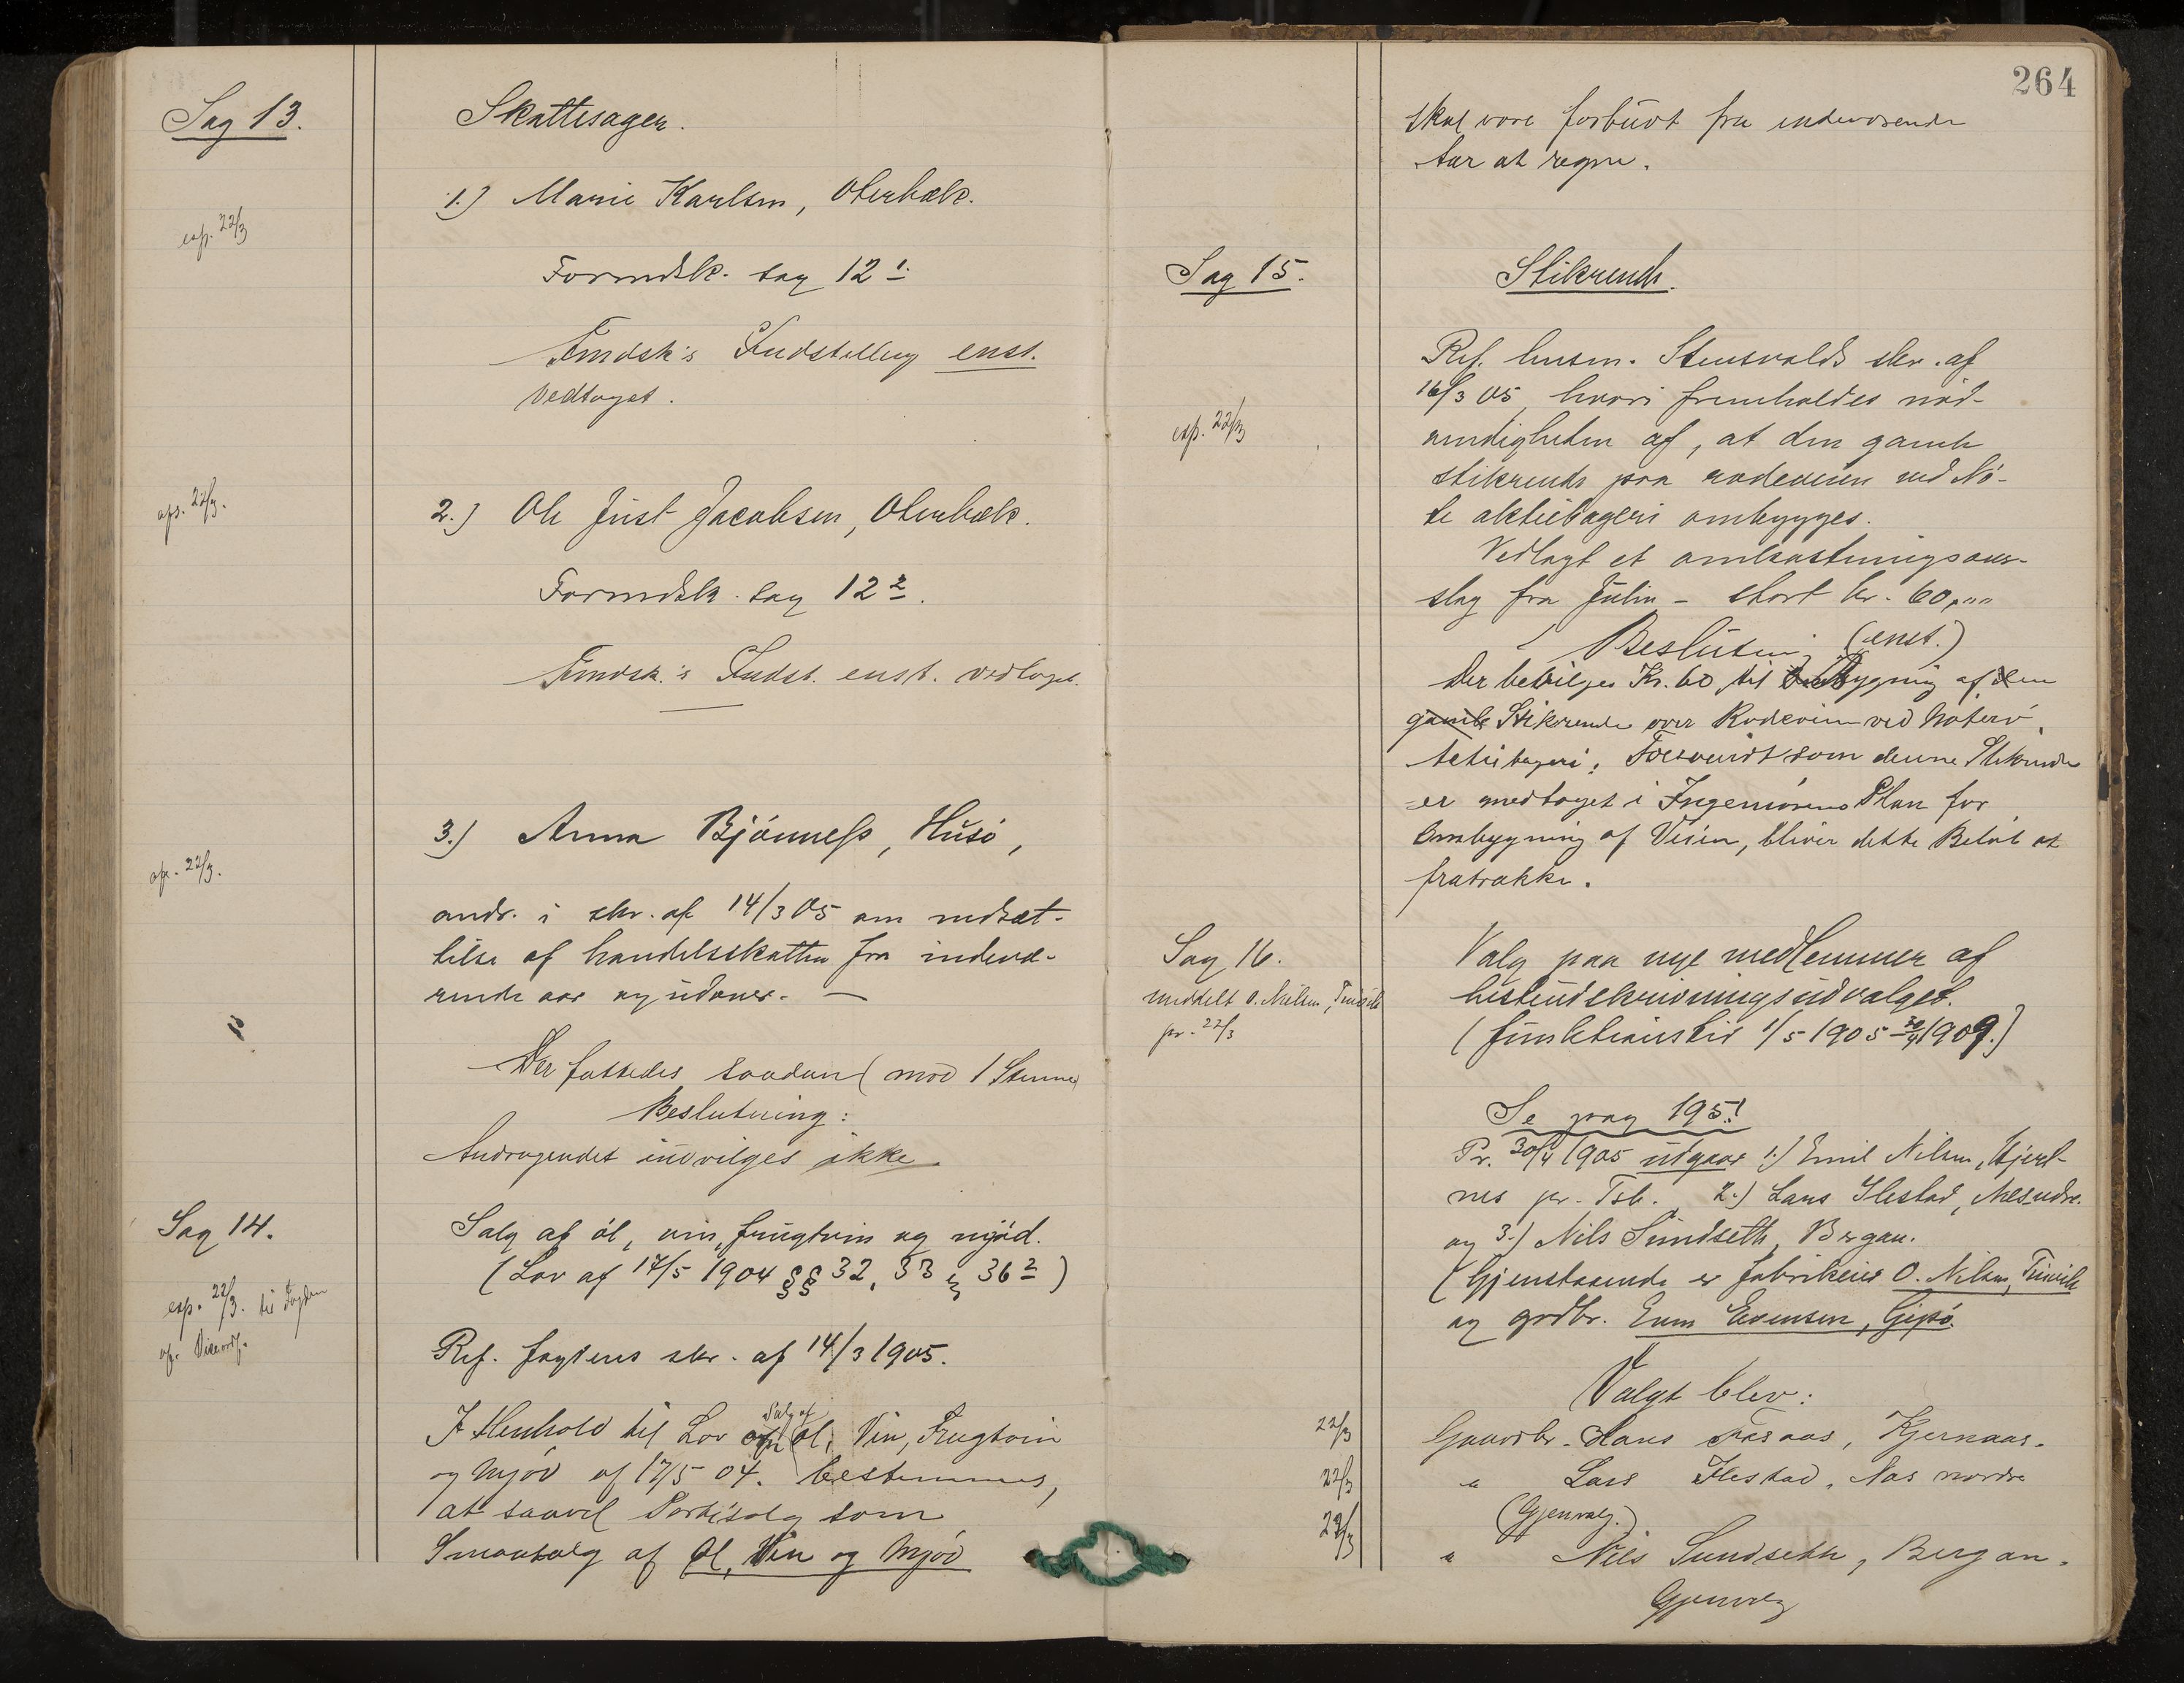 Sag 13.
Skattesager.
exp. 22/3
1.) Marie Karlsen, Oterbæk.
Formdsk. sag 12 1.
Fmdsk's Indstilling enst.
vedtaget.
exp. 22/3.
2.) Ole Just Jacobsen, Oterbæk.
Formdsk. sag 12 2.
Fmdsk.'s Indst. enst. vedtaget.
exp. 22/3.
3.) Anna Bjönness, Husö,
andr. i skr. af 14/3 05 om nedsæt-
telse af handelsskatten fra indevæ-
rende aar og udover. —
Der fattedes saadan (mod 1 Stemme)
Beslutning:
Andragendet indvilges ikke
Sag 14.
Salg af öl, vin, frugtvin og mjöd.
(Lov af 17/5 1904 §§ 32, 33 & 36 2)
exp. 22/3. til Fogden
Ref. fogdens skr. af 14/3 1905.
I Henhold til Lov om Salg af Öl, Vin, Frugtvin
og Mjöd af 17/5 04. bestemmes,
at saavel Partisalg som
Smaasalg af Öl, Vin og Mjöd
264
skal være forbudt fra indeværende
aar at regne.
Sag 15.
Stikrende.
exp. 22/3
Ref. Stensvolds skr. af
16/3 05, hvori fremholdes nöd-
vendigheden af, at den gamle
stikrende paa rodeveien ved Nö-
te aktiebageri ombygges.
Vedlagt et omkostningsover-
slag fra Julin – stort kr. 60,""
Beslutning (enst.)
Der bevilges Kr. 60 til Ombygning af den
gamle Stikrende over Rodeveien ved
Aktiebageri; Forsaavidt som denne Stikrende
er medtaget i Ingeniörens Plan for
Ombygning af Veien, bliver dette Belöb at
fratrække.
Sag 16.
Valg paa nye medlemmer af
meddelt O. Nilsen,
hesteudskrivningsudvalget.
pr. 22/3
(funktionstid 1/5 1905 – 30/4 1909.)
Se pag 195!
Pr. 30/4 1905 udgaar 1.) Emil Nilsen, Hjert-
nes pr. Tsb. 2.) Lars Ilestad, Nes nodre.
og 3.) Nils Sundseth, Bergan.
(Gjenstaaende er fabrikeier O. Nilsen,
og grdbr. Even Evensen, Gipö.
Valgt blev:
22/3
Gaardbr. Hans Aasaas, Kjernaas.
22/3
" Lars Ilestad, Nes nordre
(Gjenvalg.)
22/3
" Nils Sundseth, Bergan.
Gjenvalg